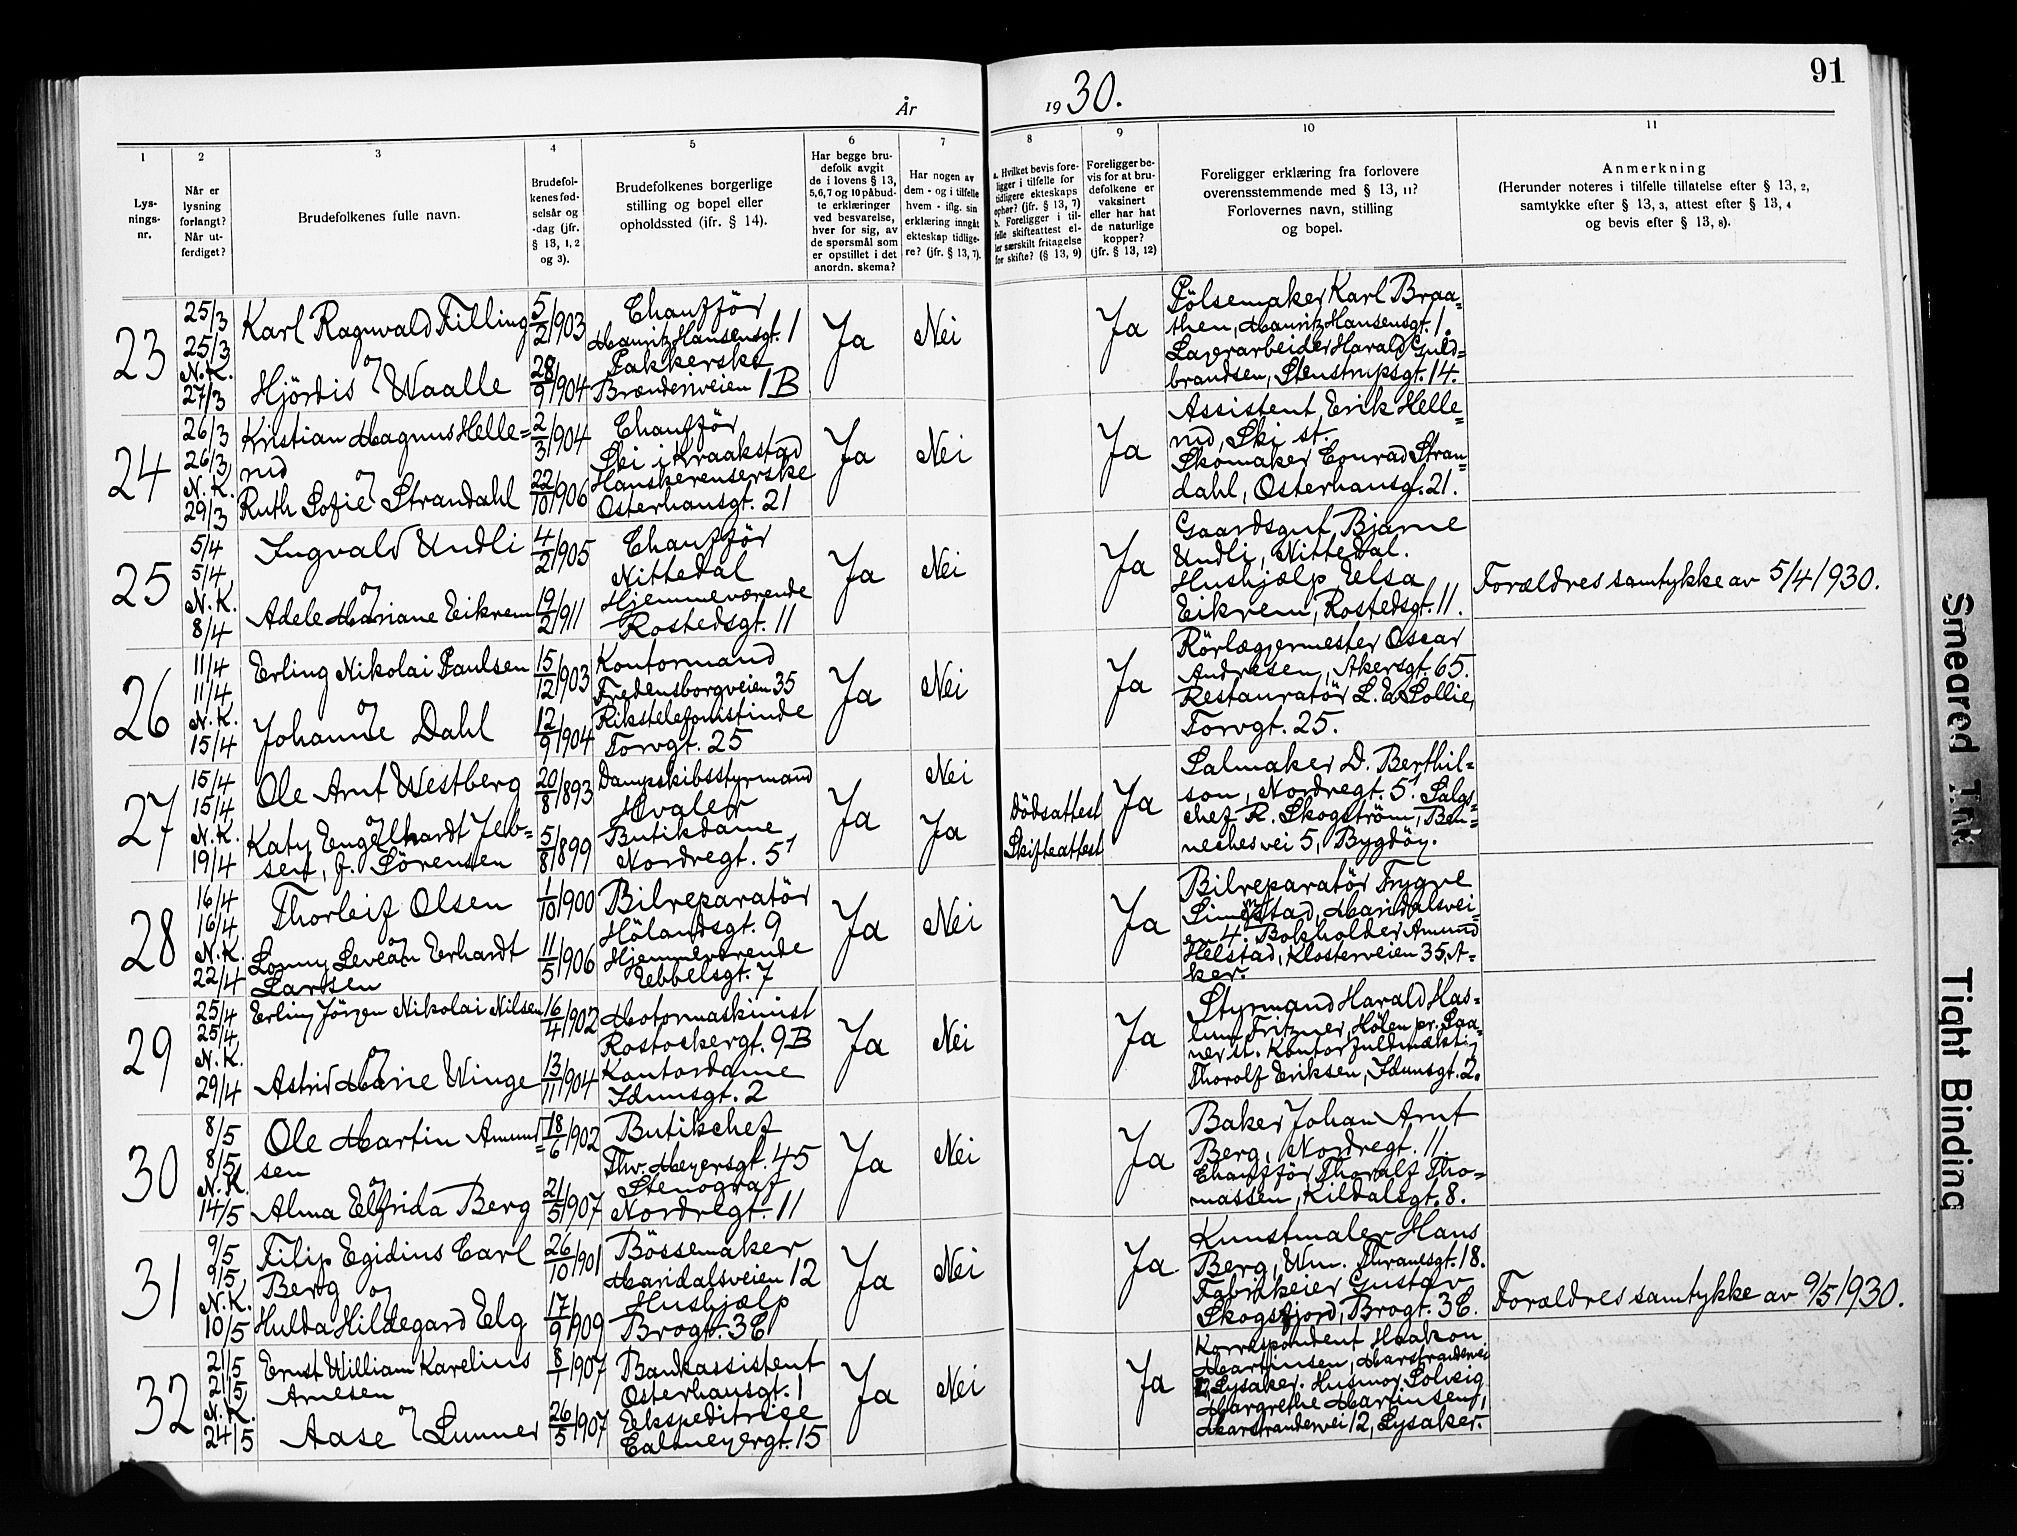 År 1930.
91
1
2
3
4
5
6
7
8
9
10
11
Lys-
nings-
nr.
Når er
lysning
forlangt?
Når ut-
ferdiget?
Brudefolkenes fulle navn.
Brudefol-
kenes fød-
selsår og
-dag (jfr.
§ 13, 1, 2
og 3).
Brudefolkenes borgerlige
stilling og bopel eller
opholdssted (ifr. § 14).
Har begge bru-
defolk avgit
de i lovens § 13,
5,6,7 og 10 påbud-
te erklæringer
ved besvarelse,
hver for sig, av
de spørsmål som
er opstillet i det
anordn. skema?
Har nogen av
dem - og i tilfelle
hvem - iflg. sin
erklæring inngåt
ekteskap tidlige-
re? (jfr. § 13, 7).
a. Hvilket bevis fore-
ligger i tilfelle for
tidligere ekteskaps
ophør? (jfr. § 13, 7)
b. Foreligger i til-
felle skifteattest el-
ler særskilt fritagelse
for skifte? (§ 13, 9)
Foreligger be-
vis for at bru-
defolkene er
vaksinert
eller har hat
de naturlige
kopper?
(jfr. § 13, 12)
Foreligger erklæring fra forlovere
overensstemmende med § 13, 11?
Forlovernes navn, stilling
og bopel.
Anmerkning
(Herunder noteres i tilfelle tillatelse efter § 13, 2,
samtykke efter § 13, 3, attest efter § 13, 4
og bevis efter § 13, 8).
23
25/3
25/3
N.K.
27/3
Karl Ragnvald Filling
og
Hjördis Waalle
5/2 1903
28/9 1904
Chaufför
Mauritz Hansensgt. 1
Pakkerske
Brænderiveien 1B
Ja
Nei
Ja
Pölsemaker Karl Braa=
then, Mauritz Hansensgt. 1.
Lagerarbeider Harald Guld=
brandsen, Stenstrupsgt. 14.
24
26/3
26/3
N.K.
29/3
Kristian Magnus Helle=
rud
og
Ruth Sofie Strandahl
2/3 1904
22/10 1906
Chaufför
Ski i Kraakstad
Hanskerenserske
Osterhausgt. 21
Ja
Nei
Ja
Assistent Erik Helle=
rud, Ski st.
Skomaker Conrad Stran=
dahl, Osterhausg. 21.
25
5/4
5/4
N.K.
8/4
Ingvald Undli
og
Adele Mariane Eikrem
4/2 1905
19/2 1911
Chaufför
Nittedal
Hjemmeværende
Rostedsgt. 11
Ja
Nei
Ja
Gaardsgut Bjarne
Undli, Nittedal.
Hushjælp Elsa
Eikrem, Rostedsgt. 11.
Forældres samtykke av 5/4 1930.
26
11/4
11/4
N.K.
15/4
Erling Nikolai Paulsen
og
Johanne Dahl
15/12 1903
12/9 1904
Kontormand
Fredensborgveien 35
Rikstelefonistinde
Torvgt. 25
Ja
Nei
Ja
Rörlæggermester Oscar
Andresen, Akersgt. 65.
Restauratör L. E. Sollie,
Torvgt. 25.
27
15/4
15/4
N.K.
19/4
Ole Arnt Westberg
og
Katy Engelhardt Jeb=
sen, f. Sörensen
20/8 1893
5/8 1899
Dampskibsstyrmand
Hvaler
Butikdame
Nordregt. 5
Ja
Nei
Ja
Dödsattest
Skifteattest
Ja
Salmaker D. Berthil=
son, Nordregt. 5. Salgs=
chef R. Skogström, Ben=
neches vei 5, Bygdöy.
28
16/4
16/4
N.K.
22/4
Thorleif Olsen
og
Lonny Levean Erhardt
Larsen
1/10 1900
11/5 1906
Bilreparatör
Hölandsgt. 9
Hjemmeværende
Ebbelsgt. 7
Ja
Nei
Ja
Bilreparatör Trygve
Simenstad, Maridalsvei=
en 4. Bokholder Amund
Helstad, Klosterveien 35, A=
ker.
29
25/4
25/4
N.K.
29/4
Erling Jörgen Nikolai Nilsen
og
Astrid Marie Winge
16/4 1902
13/11 1904
Motormaskinist
Rostockergt. 9B
Kontordame
Idunsgt. 2
Ja
Nei
Ja
Styrmand Harald Has=
lum Fritzner, Hölen pr. Saa=
ner st. Kontorfuldmæktig
Thorolf Eriksen, Idunsgt. 2.
30
8/5
8/5
N.K.
14/5
Ole Martin Amund=
sen
og
Alma Elfrida Berg
18/6 1902
21/5 1907
Butikchef
Thv. Meyersgt. 45
Stenograf
Nordregt. 11
Ja
Nei
Ja
Baker Johan Arnt
Berg, Nordregt. 11.
Chaufför Thoralf Tho=
massen, Kildalsgt. 8.
31
9/5
9/5
N.K.
10/5
Filip Egidius Carl
Berg og
Hulda Hildegard Elg
26/10 1901
17/9 1909
Bössemaker
Maridalsveien 12
Hushjælp
Brogt. 3C
Ja
Nei
Ja
Kunstmaler Hans
Berg, Wm. Thranesgt. 18.
Fabrikeier Gustav
Skogsfjord, Brogt. 3C.
Forældres samtykke av 9/5 1930.
32
21/5
21/5
N.K.
24/5
Ernst William Karelius
Arnesen
og
Aase Lunner
8/1 1907
26/5 1907
Bankassistent
Osterhausgt. 1
Ekspeditrice
Calmeyergt. 15
Ja
Nei
Ja
Korrespondent Haakon
Martinsen, Marstrandervei
12, Lysaker. Husmor Solveig
Margrethe Martinsen,
Marstrandervei 12, Lysaker.
Smeared Ink
Tight Binding